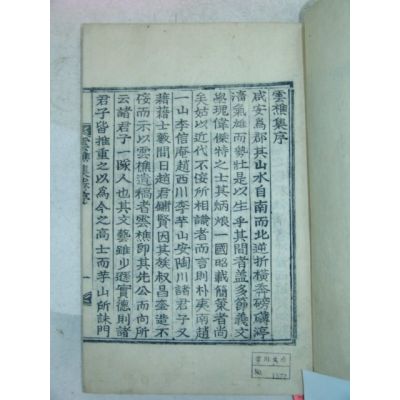 雲樵集序
咸安爲郡其山水自南而北逆折橫奔磅礴渟
滀氣雄而勢壯是以生乎其間者盖多節義文
學瑰偉傑特之士其炳娘一國昭載簡策者尚
矣姑以近代不佞所相識者而言則朴東南趙
一山李信庵趙西川李芋山安陶川諸君子又
藉藉士藪間日趙君鏞賢因其族叔昌奎造不
佞而示以雲樵遺稿者雲樵卽其先公而向所
云諸君子一隊人也其文藝雖少遜實德則諸
君子皆推重之以爲今之高士而芋山所誄門
雲樵集序
一